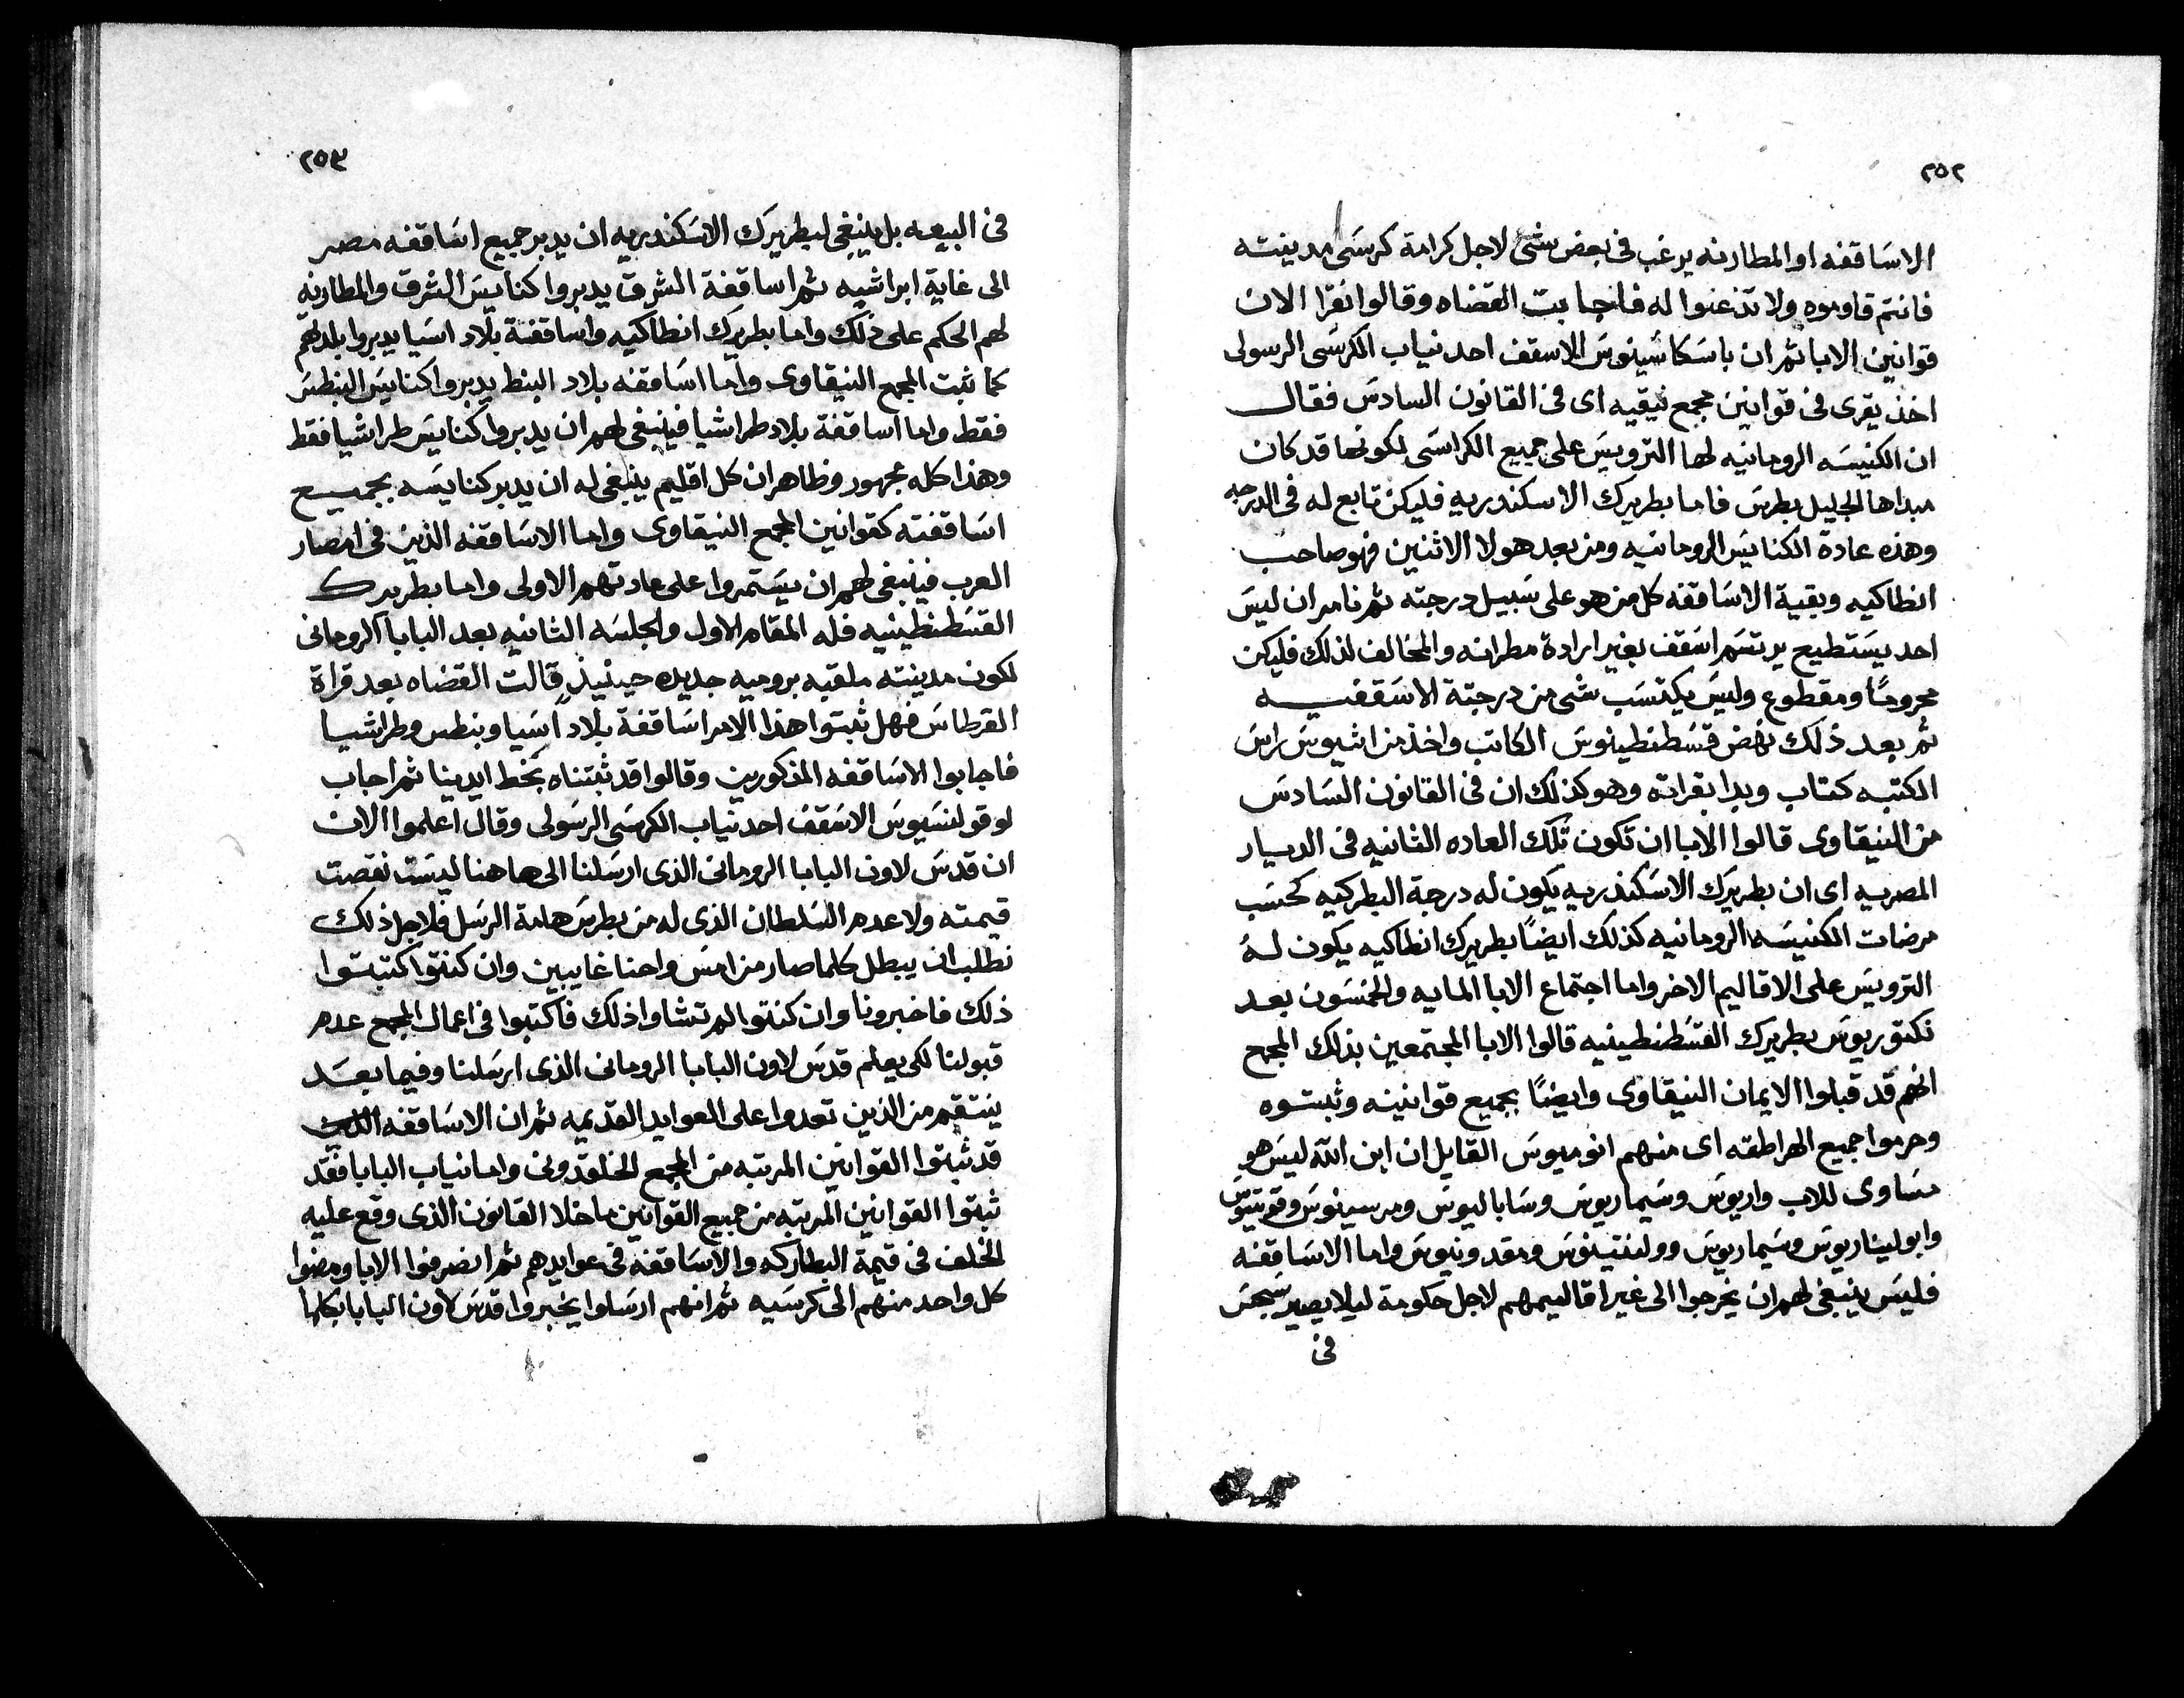 ٢٥٢
الاساقفه او المطارنه يرغب فى بعض شى لاجل كرامة كرسى مدينته
فانتم قاوموه ولا تذعنوا له فاجابت القضاه وقالوا نقرا الان
قوانين الابا ثم ان باسكاسينوس الاسقف احد نياب الكرسى الرسولى
اخذ يقرى فى قوانين مجمع نيقيه اى فى القانون السادس فقال
ان الكنيسه الرومانيه لها الترويس على جميع الكراسى لكونها قد كان
مبداها الجليل بطرس فاما بطريرك الاسكندريه فليكن تابع له فى الدرجه
وهذه عادة الكنايس الرومانيه ومن بعد هولا الاثنين فهو صاحب
انطاكيه وبقية الاساقفه كل من هو على سبيل درجته ثم نامر ان ليس
احد يستطيع يرتسم اسقف بغير ارادة مطرانه والمخالف لذلك فليكن
محرومًا ومقطوع وليس يكتسب شى من درجتة الاسقفيه
ثم بعد ذلك نهض قسطنطينوس الكاتب واخذ من اشيوس راس
الكتبه كتاب وبدا بقراته وهو كذلك ان فى القانون السادس
من النيقاوى قالوا الابا ان تكون تلك العاده الثانيه فى الديار
المصريه اى ان بطريرك الاسكندريه يكون له درجة البطركيه كحسب
مرضات الكنيسه الرومانيه كذلك ايضًا بطريرك انطاكيه يكون له
الترويس على الاقاليم الاخر واما اجتماع الابا المايه والخمسون بعد
نكتوريوس بطريرك القسطنطينيه قالوا الابا المجتمعين بذلك المجمع
انهم قد قبلوا الايمان النيقاوى وايضًا بجميع قوانينه وثبتوه
وحرموا جميع الهراطقه اى منهم انوميوس القايل ان ابن الله ليس هو
مساوى للاب واريوس وسيماريوس وساباليوس ومرسينوس وفوتينوس
وابوليناريوس وسيماريوس وولنتينوس ومقدونيوس واما الاساقفه
فليس ينبغى لهم ان يخرجوا الى غير اقاليمهم لاجل حكومة ليلا يصير سجس
فى
٢٥٣
فى البيعه بل ينبغى لبطريرك الاسكندريه ان يدبر جميع اساقفه مصر
الى غاية ابراشيه ثم اساقفة الشرق يدبروا كنايس الشرق والمطارنه
لهم الحكم على ذلك واما بطريرك انطاكيه واساقفة بلاد اسيا يدبروا بلدهم
كما ثبت المجمع النيقاوى واما اساقفه بلاد البنط يدبروا كنايس البنطس
فقط واما اساقفة بلاد طراشيا فينبغى لهم ان يدبروا كنايس طراشيا فقط
وهذا كله مجهور وظاهر ان كل اقليم ينبغى له ان يدبر كنايسه بجميع
اساقفته كقوانين المجمع النيقاوى واما الاساقفه الذين فى امصار
العرب فينبغى لهم ان يستمروا على عادتهم الاولى واما بطريرك
القسطنطينيه فله المقام الاول والجلسه الثانيه بعد البابا الرومانى
لكون مدينته ملقبه بروميه جديده حينيذٍ قالت القضاه بعد قراة
القرطاس فهل ثبتوا هذا الامر اساقفة بلاد اسيا وبنطس وطراشيا
فاجابوا الاساقفه المذكورين وقالوا قد ثبتناه بخط ايدينا ثم اجاب
لوقولنسيوس الاسقف احد نياب الكرسى الرسولى وقال اعلموا الان
ان قدس لاون البابا الرومانى الذى ارسلنا الى هاهنا ليست نقصت
قيمته ولا عدم السلطان الذى له من بطرس هامة الرسل فلاجل ذلك
نطلب ان يبطل كلما صار من امس واحنا غايبين وان كنتوا كتبتوا
ذلك فاخبرونا وان كنتوا لم تشاوا ذلك فاكتبوا فى اعمال المجمع عدم
قبولنا لكى يعلم قدس لاون البابا الرومانى الذى ارسلنا وفيما بعد
ينتقم من الذين تعدوا على العوايد القديمه ثم ان الاساقفه الذين
قد ثبتوا القوانين المرتبه من المجمع الخلقدونى واما نياب البابا فقد
ثبتوا القوانين المرتبه من جميع القوانين ماخلا القانون الذى وقع عليه
الخلف فى قيمة البطاركه والاساقفه فى عوايدهم ثم انصرفوا الابا ومضوا
كل واحد منهم الى كرسيه ثم انهم ارسلوا يخبروا قدس لاون البابا بكلما